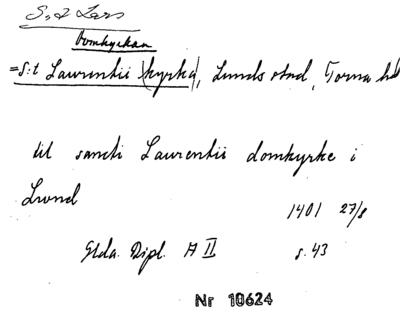 S:t Lars
Domkyrkan
=S:t Laurentii (kyrka), Lunds stad, Torna hd
til sancti Laurentii domkyrke i
Lwnd
1401 27/8
Glda. Dipl. A II s. 43
Nr 10624